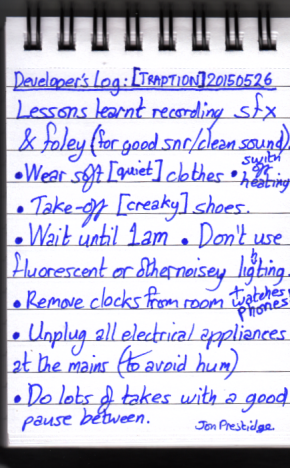 Developer's Log: [TRAPTION] 20150526
Lessons learnt recording sfx
& foley (for good snr/clean sound).
• Wear soft [quiet] clothes • switch off heating
• Take-off [creaky] shoes.
• Wait until 1am • Don't use
fluorescent or other noisey lighting.
• Remove clocks from room + watches + phones
• Unplug all electrical appliances
at the mains (to avoid hum)
• Do lots of takes with a good
pause between.
Jon Prestidge.